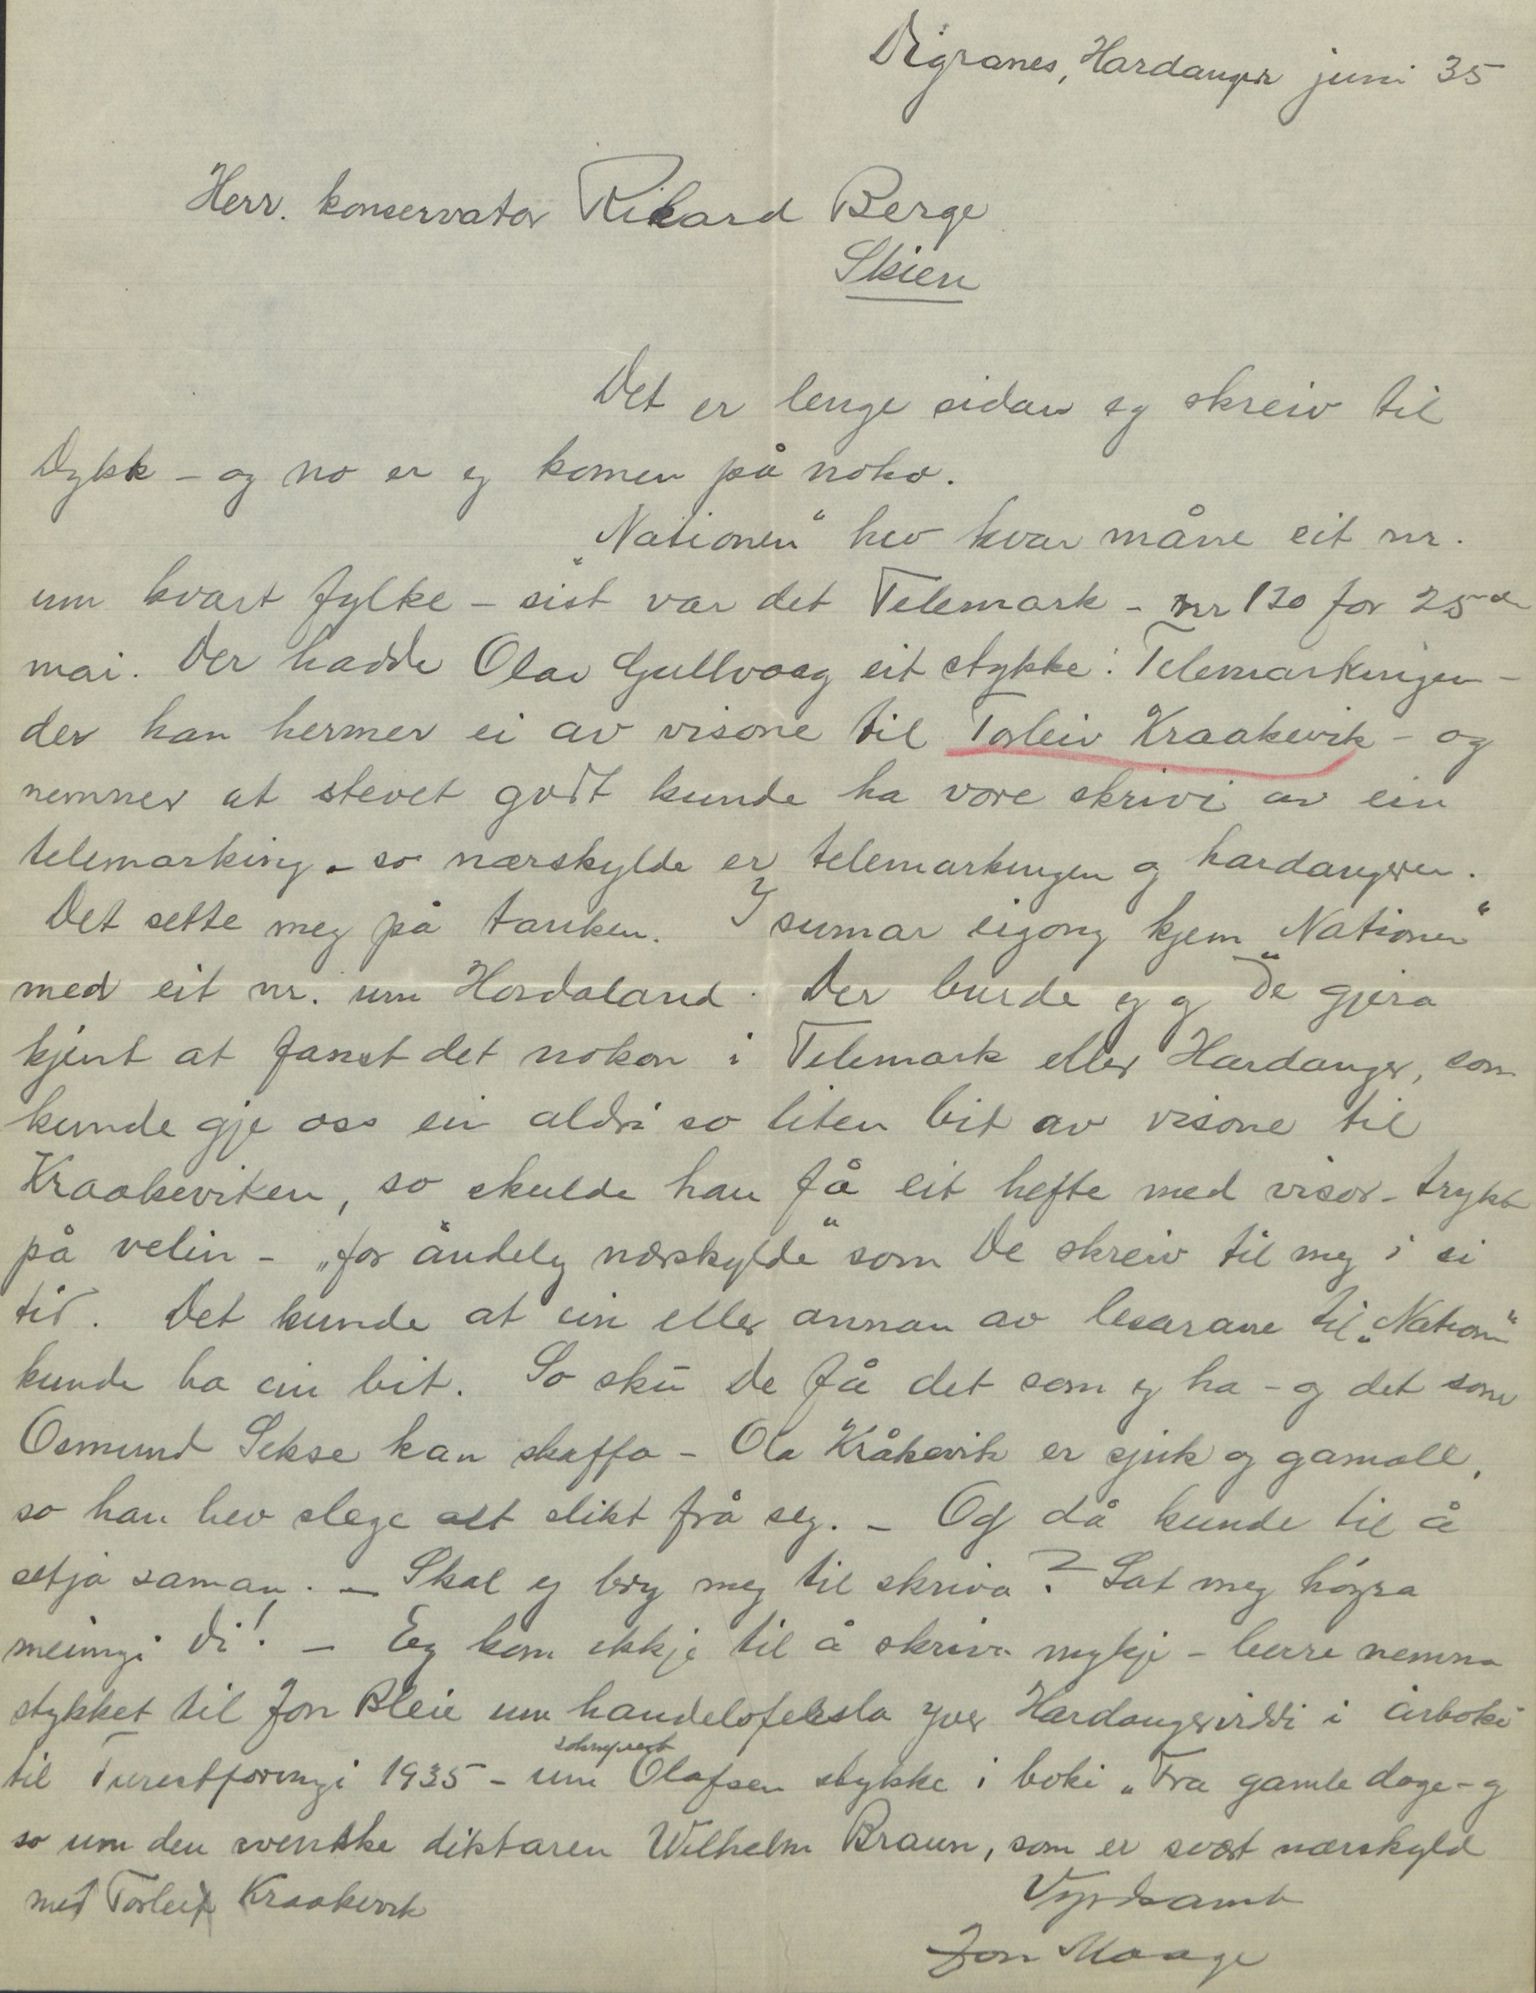 Digranes, Hardanger juni 35
Herr. konservator Rikard Berge
Skien
Det er lenge sidan eg skreiv til
Dykk – og no er eg komen på noko.
„Nationen“ hev kvar måne eit nr.
um kvart fylke – sist var det Telemark – nr 120 for 25de
mai. Der hadde Olav Gullvaag eit stykke: Telemarkingen –
der han hermer ei av visone til Torleiv Kraakevik – og
nemner at stevet godt kunde ha vore skrivi av ein
telemarking – so nærskylde er telemarkingen og hardangeren.
Det sette meg på tanken. I sumar eigong kjem „Nationen“
med eit nr. um Hordaland. Der burde eg og De gjera
kjent at fanst det nokon i Telemark eller Hardanger, som
kunde gje oss ein aldri so liten bit av visone til
Kraakeviken, so skulde han få eit hefte med visor – trykt
på velin – „for åndeleg nærskylde“ som De skreiv til meg i si
tid. Det kunde at ein eller annan av lesarane til „Nationen“
kunde ha ein bit. So sku De få det som eg ha – og det som
Osmund Sekse kan skaffa – Ola Kråkevik er sjuk og gamall,
so han hev slege alt slikt frå seg. – Og då kunde til å
setja saman. – Skal eg bry meg til skriva? Lat meg høyra
meiningi Di! – Eg kom ikkje til å skriva mykje – berre nemna
stykket til Jon Bleie um handelsferdsla yver Hardangerviddi i årboki
til Turistforeningi 1935 – um sokneprest Olafsen stykke i boki „Fra gamle dage – og
so um den svenske diktaren Wilhelm Braun, som er svært nærskyld
med Torleif Kraakevik
Vyrdsamt
Jon Maage